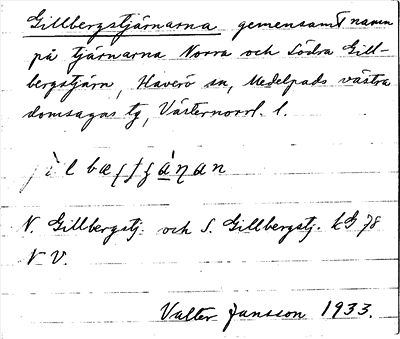 Gillbergstjärnarna gemensamt namn
på tjärnarna Norra och Södra Gill-
bergstjärn, Haverö sn, Medelpads västra
domsagas tg, Västernorrl. l.
N. Gillbergstj. och S. Gillbergstj. kG 78
N V.
Valter Jansson 1933.